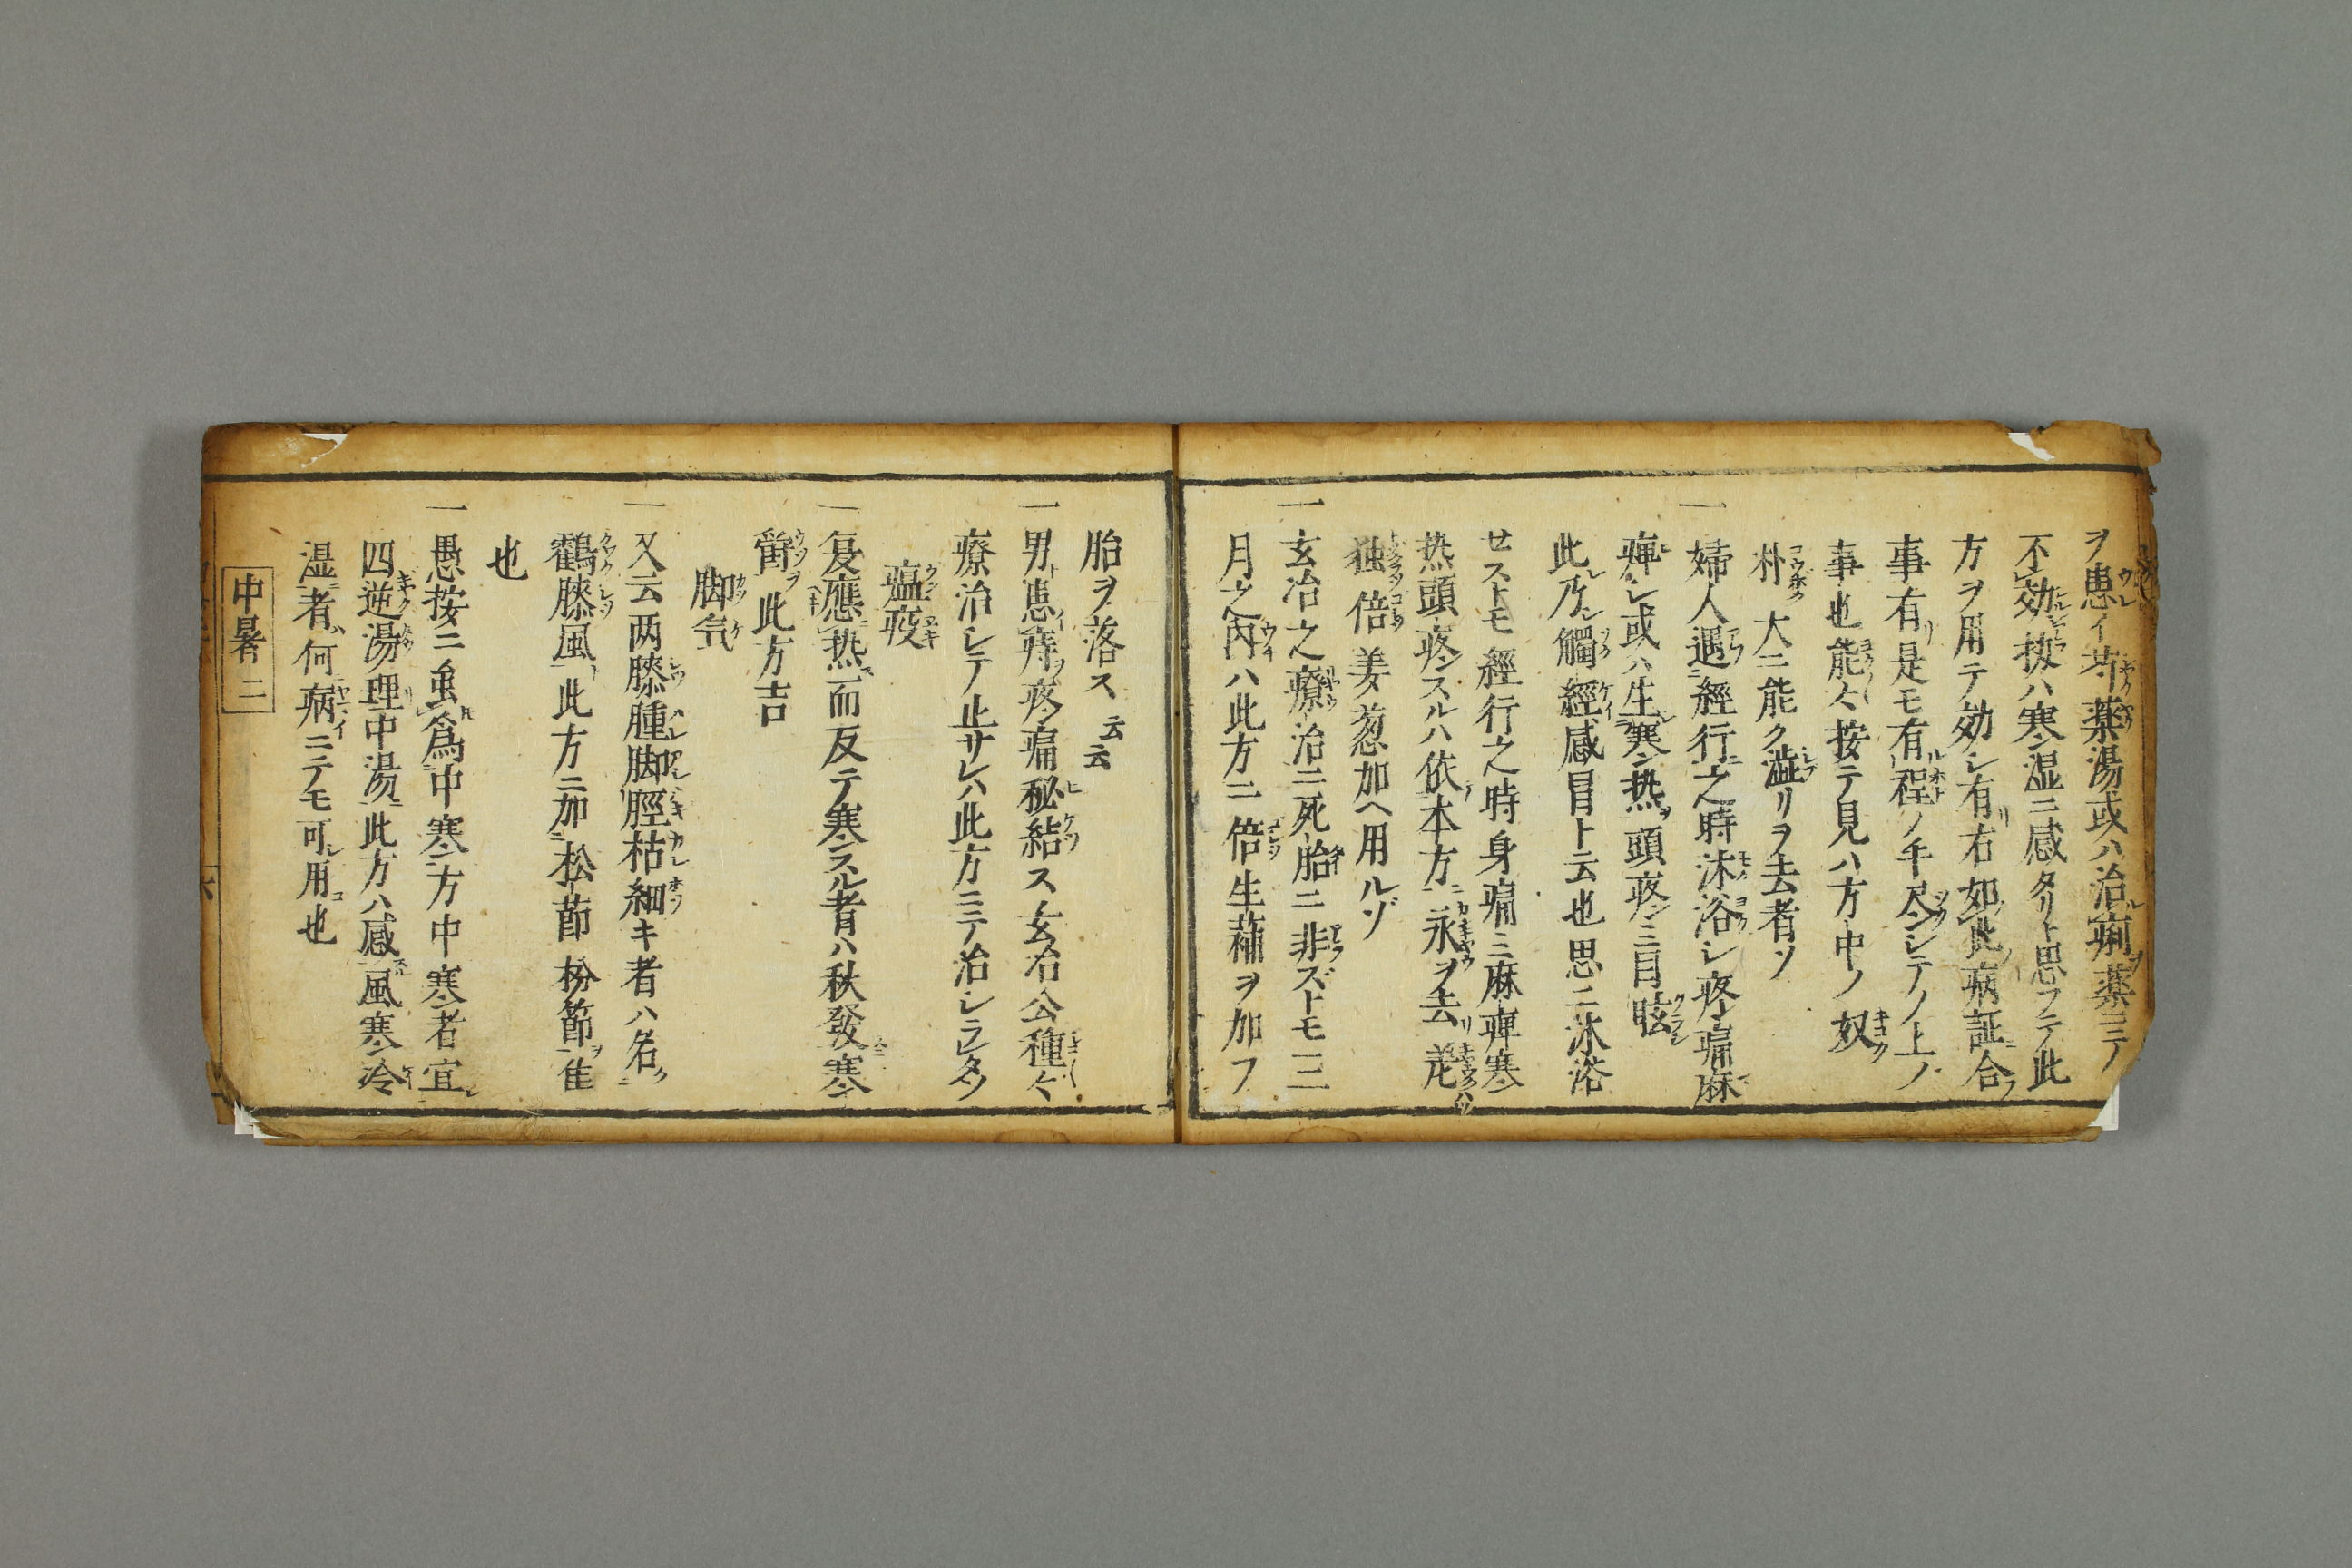 ヲ患イ芍薬湯或ハ治痢薬ニテ
不効扨ハ寒湿ニ感タリト思フテ此
方ヲ用テ効シ有右如此病証合
事有是モ有程ノ手尽シテノ上ノ
事也能々按テ見ハ方中ノ奴
朴大ニ能ク澁リヲ去者ソ
一婦人遇經行之時沐浴シ疼痛麻
痺シ或ハ生寒熱頭疼シ目眩
此乃觸經感冒ト云也思ニ沐浴
せストモ經行之時身痛ミ麻痺寒
热頭疼スルハ依本方ニ永ヲ去羗
独倍姜葱加ヘ用ルゾ
一玄冶之療治ニ死胎ニ非ズトモ三
月之内ハ此方ニ倍生蘓ヲ加フ
胎ヲ落ス云云
一男患痔疼痛秘結ス玄冶公種々
療治シテ止サレハ此方ニテ治シラレタソ
瘟疫
一夏應热而反テ寒スル者ハ秋發寒
欝ヲ此方吉
脚気
一又云两膝腫脚脛枯細キ者ハ名
鶴膝風此方ニ加松節杉節佳
也
一愚按ニ虽為中寒方中寒者宜
四逆湯理中湯此方ハ感風寒冷
湿者何病ニテモ可用也
中暑二
六